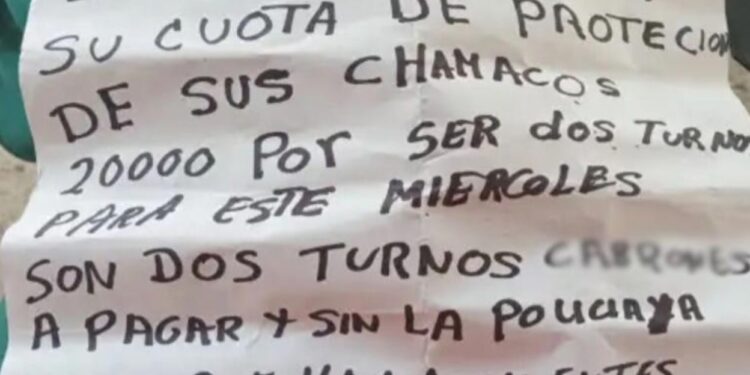 SU CUOTA DE PROTECION
DE SUS CHAMACOS
20000 POR SER dos TURNO
PARA ESTE MIERCOLES
SON DOS TURNOS CABRONES
A PAGAR Y SIN LA POLICIAYA